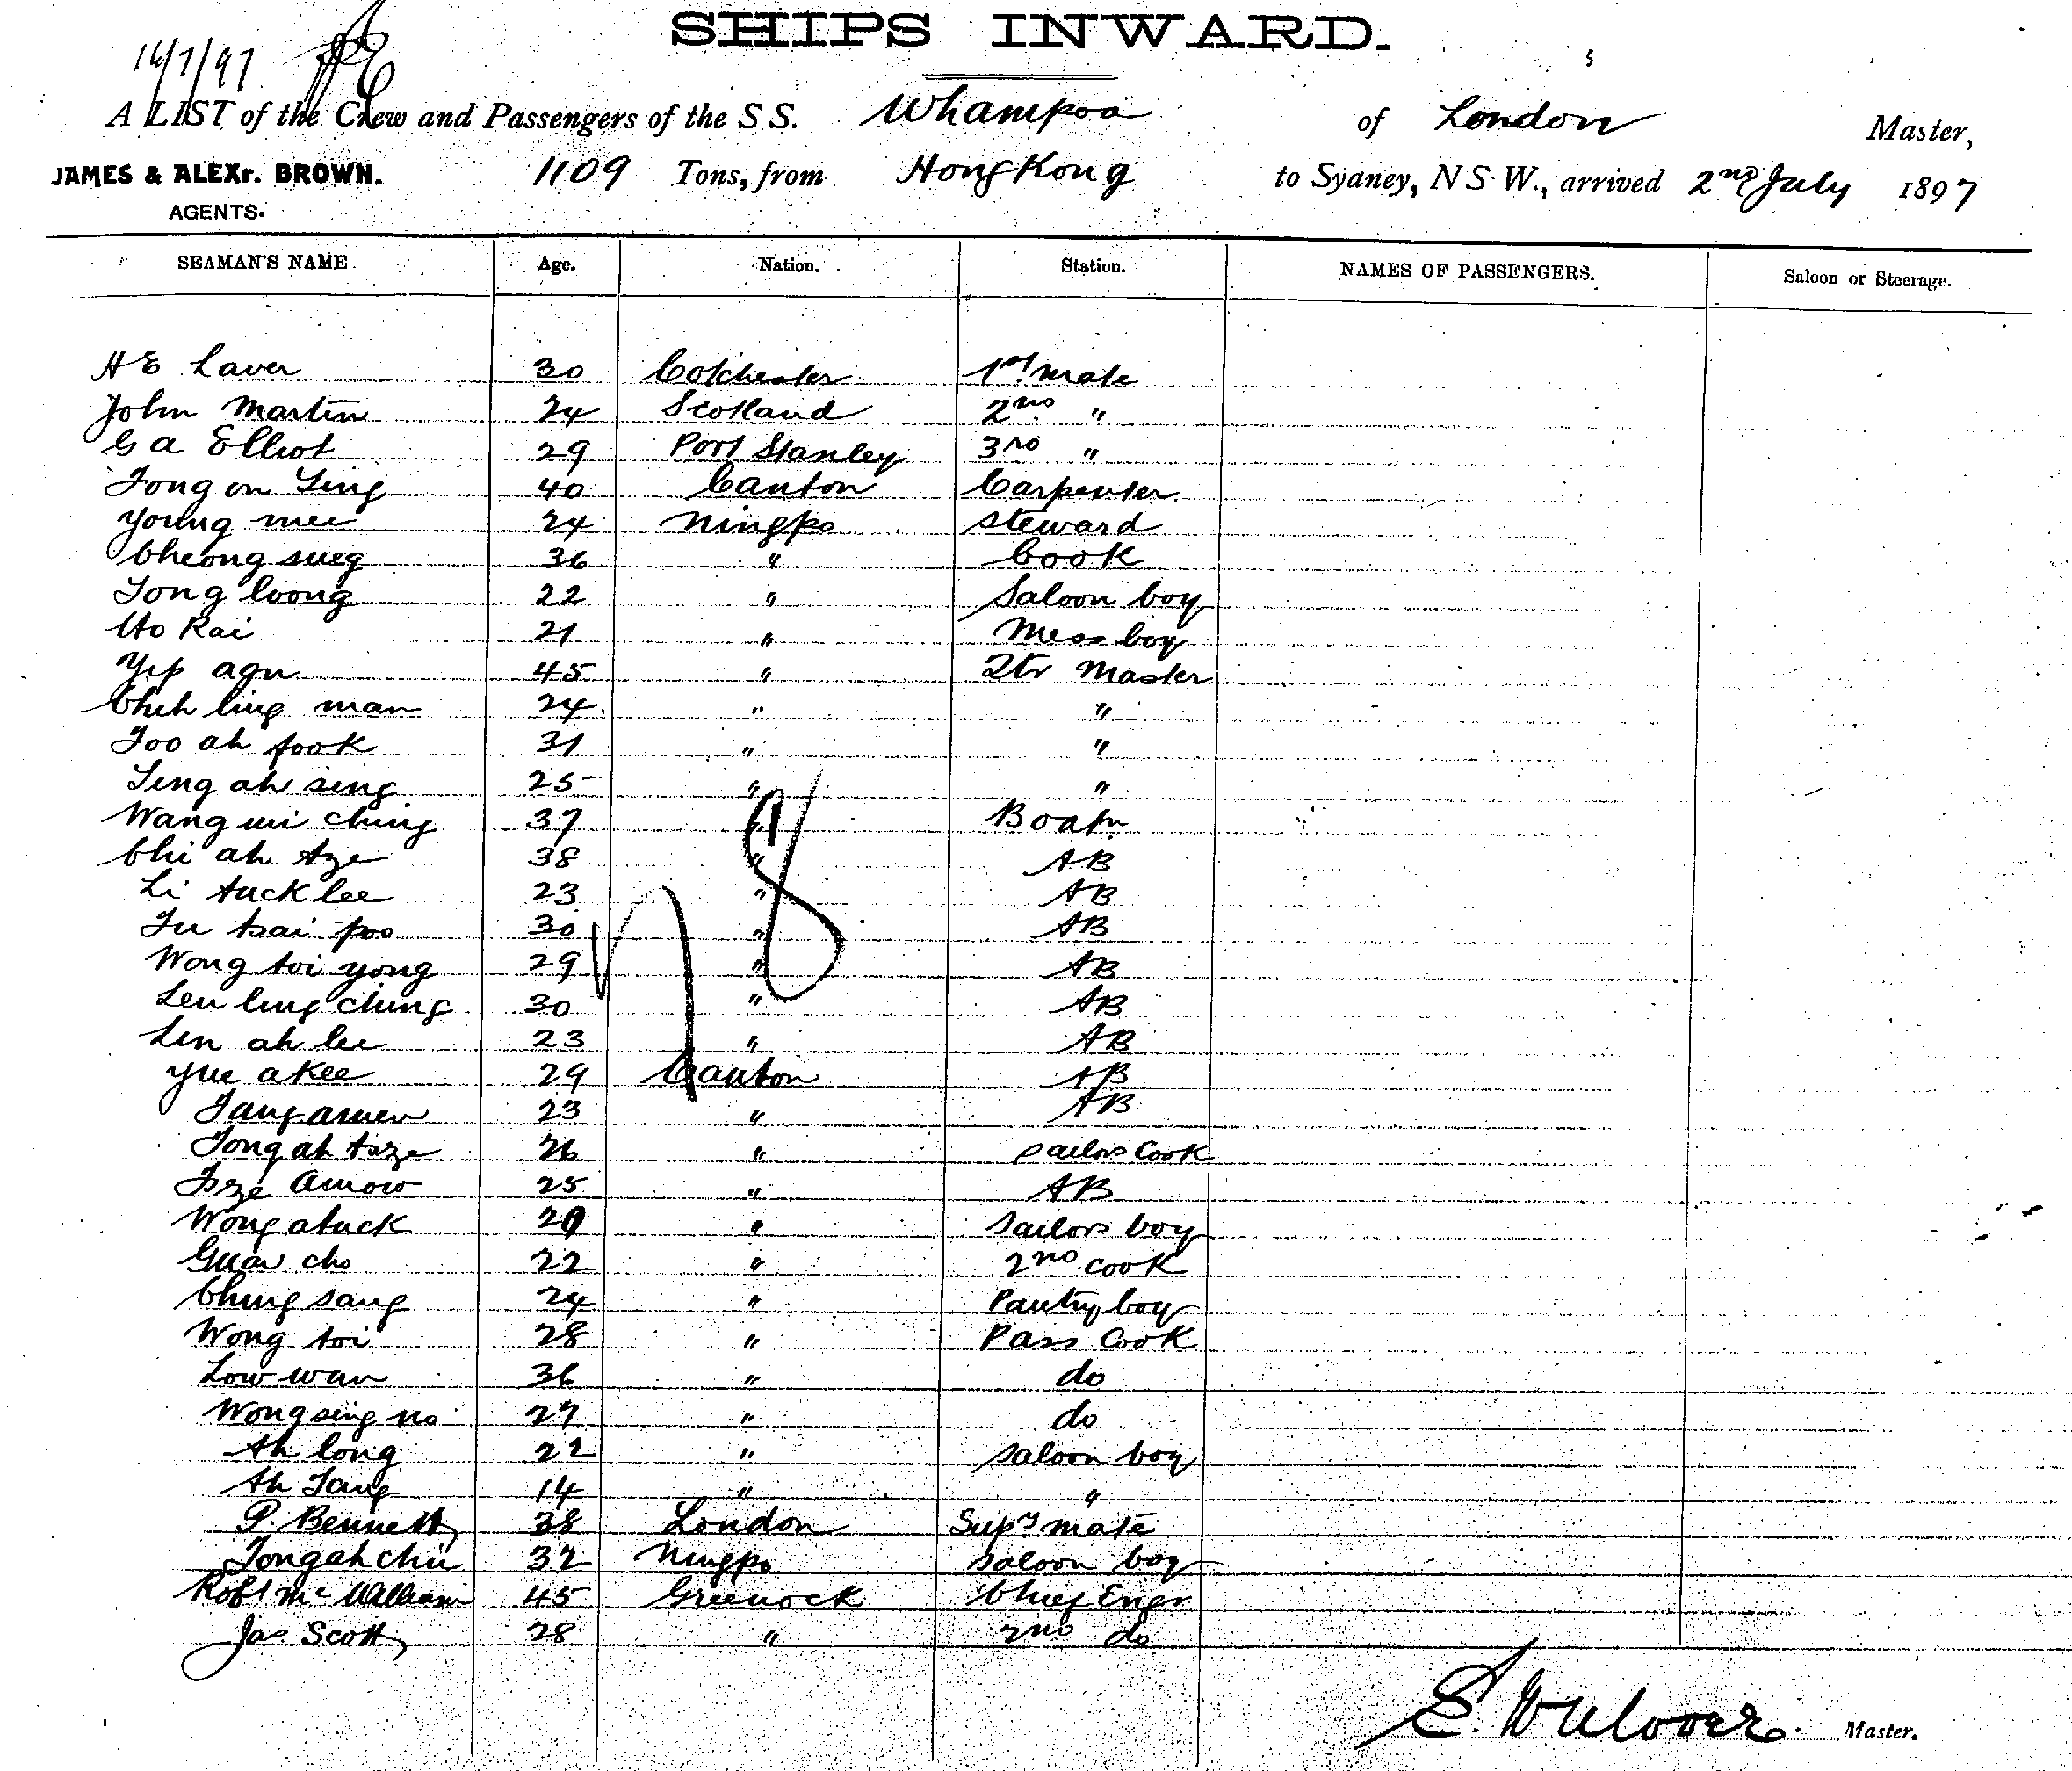 SHIPS INWARD.
16/7/97
A LIST of the Crew and Passengers of the S S. Whampoa of London Master,
JAMES & ALEXr. BROWN. 1109 Tons, from Hong Kong to Sydney, N S W., arrived 2nd July 1897
AGENTS.
SEAMAN'S NAME Age. Nation. Station. NAMES OF PASSENGERS. Saloon or Steerage.
H E Laver 30 Colchester 1st mate
John Martin 24 Scotland 2nd "
G A Elliot 29 Port Stanley 3rd "
Fong on Ling 40 Canton Carpenter
Young mee 24 Ningpo Steward
Cheong sueg 36 " Cook
Tong loong 22 " Saloon boy
Ho Kai 21 " Mess boy
Yip agu 45 " Qtr Master
Chih ling man 24 " "
Foo ah fook 31 " "
Ling ah sing 25 " "
Wang mi ching 37 " Boatn
Chi ah tze 38 " AB
Li tuck lee 23 " AB
Fu tsai poo 30 " AB
Wong toi yong 29 " AB
Len ling ching 30 " AB
Lin ah lee 23 " AB
Yue akee 29 Canton AB
Tang amew 23 " AB
Tong ah tsze 26 " Sailors Cook
Tsze amow 25 " AB
Wong atuck 29 " Sailors boy
Guan cho 22 " 2nd Cook
Ching sang 24 " Pantry boy
Wong toi 28 " Pass Cook
Low wan 36 " do
Wong sing no 27 " do
Ah long 22 " Saloon boy
Ah Tang 14 " "
P. Bennett 38 London Supy mate
Tong ah chii 32 Ningpo Saloon boy
Robt McWilliam 45 Greenock Chief Engr
Jas Scott 28 " 2nd do
78
Master.